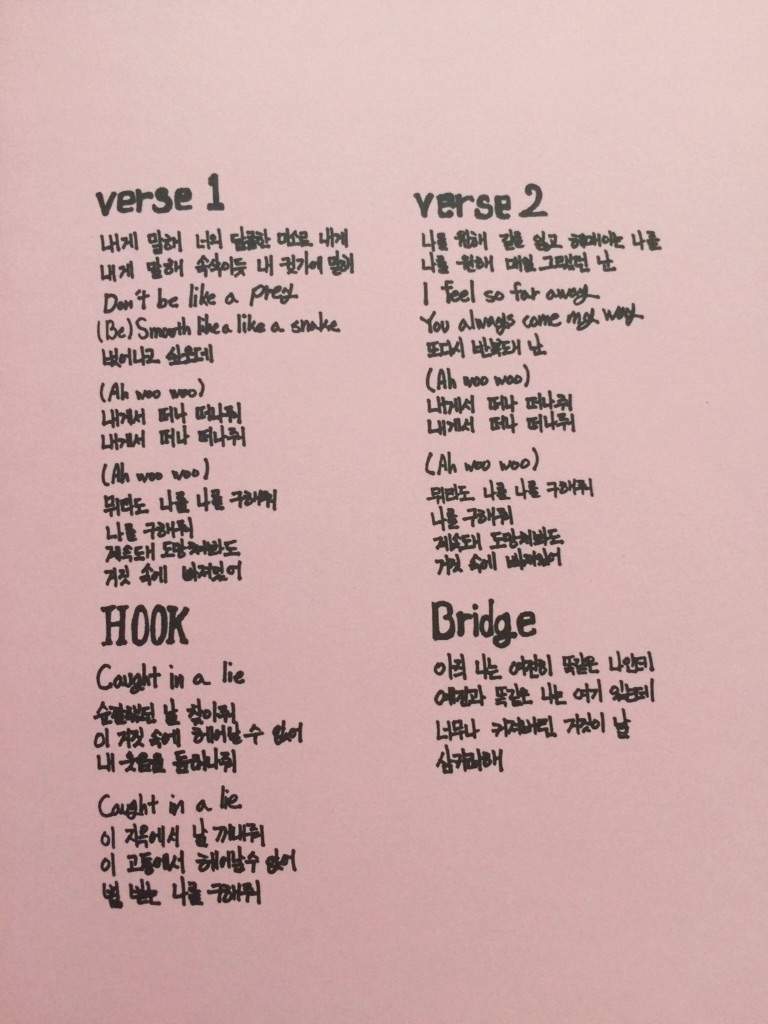 verse 1
내게 말해 너의 달콤한 미소로 내게
내게 말해 속삭이듯 내 귓가에 말해
Don't be like a prey
(Be) Smooth like a like a snake
벗어나고 싶은데
(Ah woo woo)
내게서 떠나 떠나줘
내게서 떠나 떠나줘
(Ah woo woo)
뭐라도 나를 나를 구해줘
나를 구해줘
계속돼 도망쳐봐도
거짓 속에 빠져있어
HOOK
Caught in a lie
순결했던 날 찾아줘
이 거짓 속에 헤어날 수 없어
내 웃음을 돌려놔줘
Caught in a lie
이 지옥에서 날 꺼내줘
이 고통에서 헤어날 수 없어
벌 받는 나를 구해줘
verse 2
나를 원해 길을 잃고 헤매이는 나를
나를 원해 매일 그랬던 난
I feel so far away
You always come my way
또다시 반복돼 난
(Ah woo woo)
내게서 떠나 떠나줘
내게서 떠나 떠나줘
(Ah woo woo)
뭐라도 나를 나를 구해줘
나를 구해줘
계속돼 도망쳐봐도
거짓 속에 빠져있어
Bridge
아직 나는 여전히 똑같은 나인데
예전과 똑같은 나는 여기 있는데
너무나 커져버린 거짓이 날
삼키려해